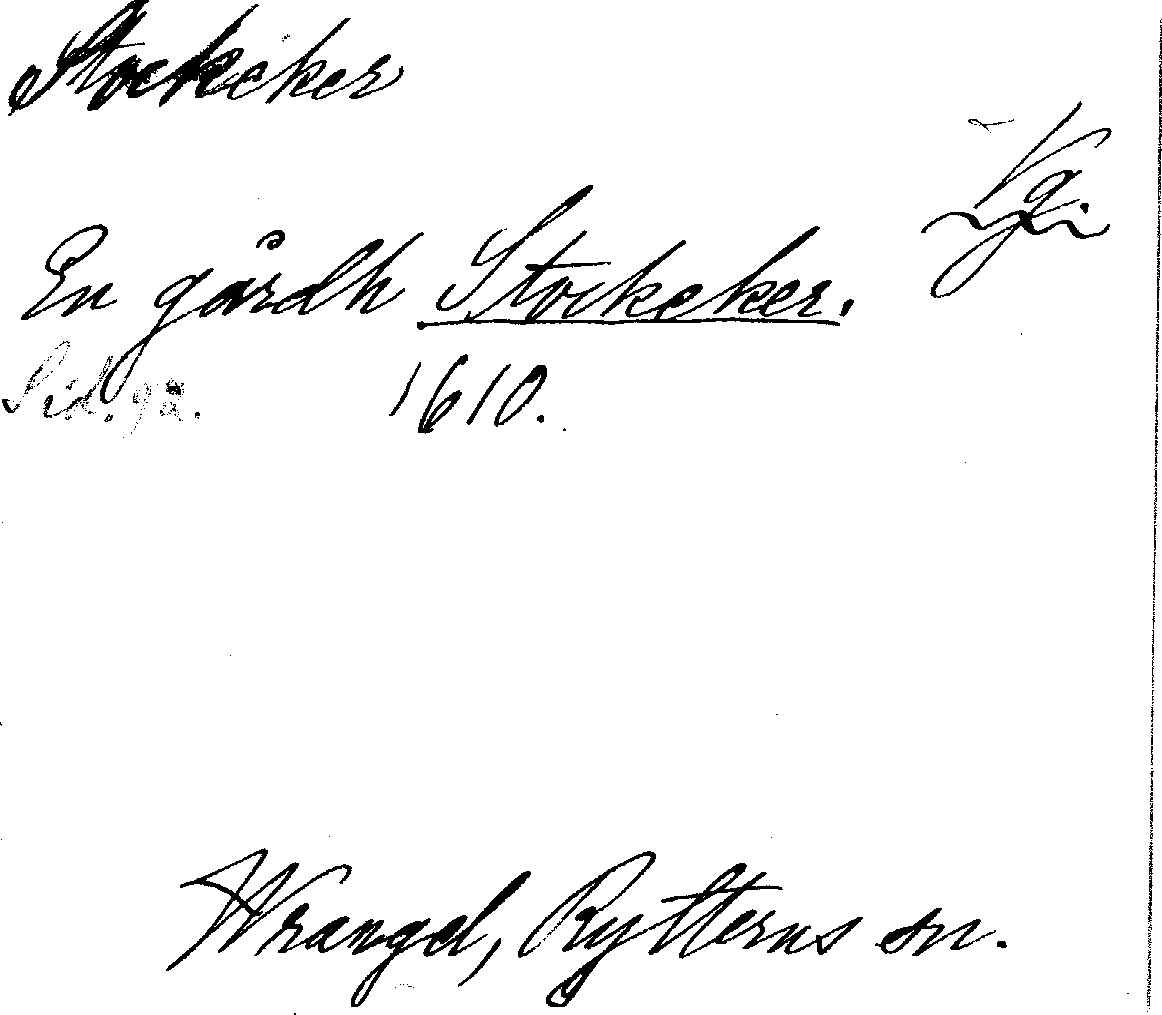 Stockeker
Vg.
En gårdh Stockeker.
Sid. 92.
1610.
Wrangel, Rytterns sn.